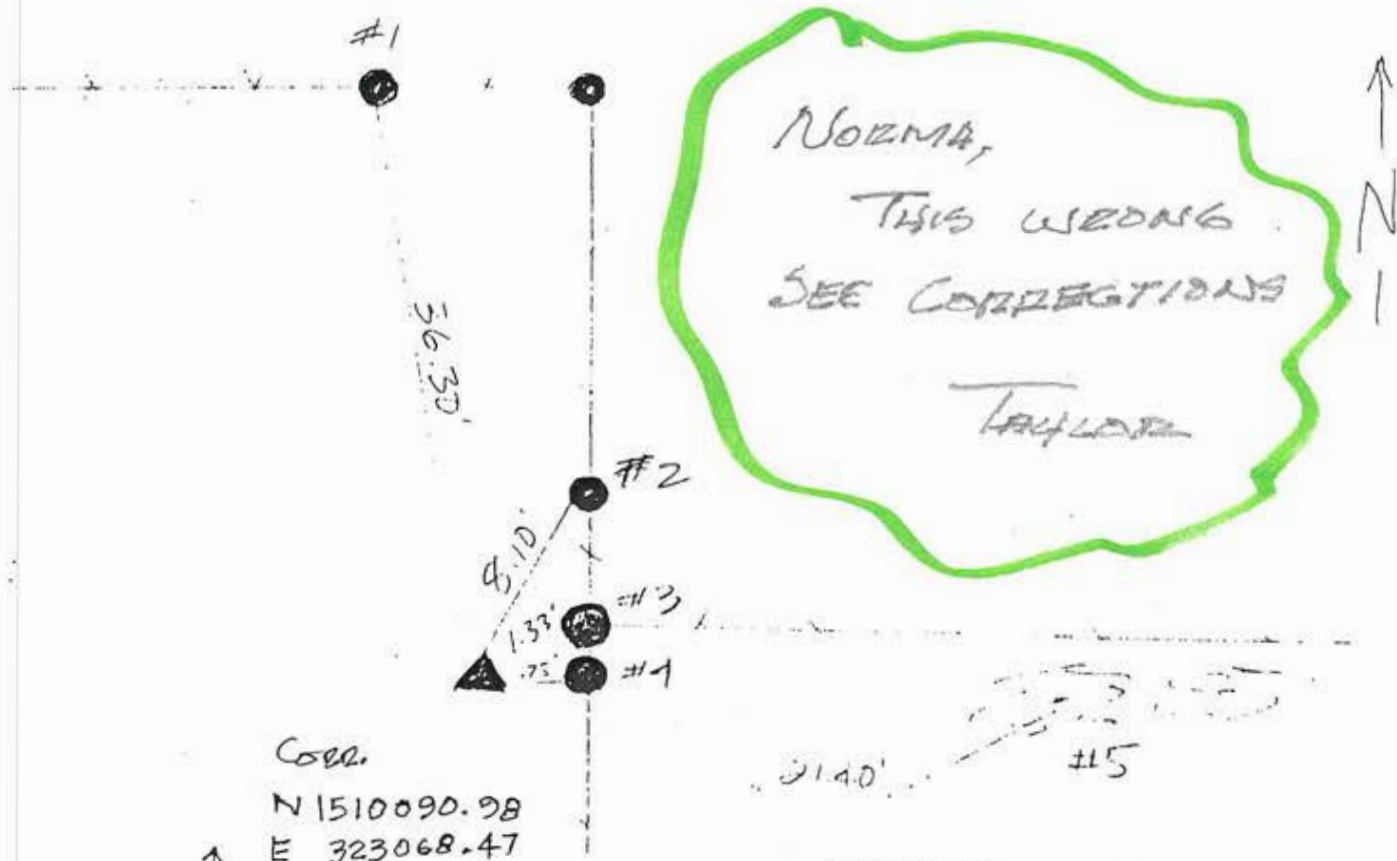 #1
NORMA,
THIS WRONG
SEE CORRECTIONS
TAYLOR
N
36.30'
#2
8.10'
#3
1.33'
.75'
#4
#5
CORR.
N 1510090.98
E 323068.47